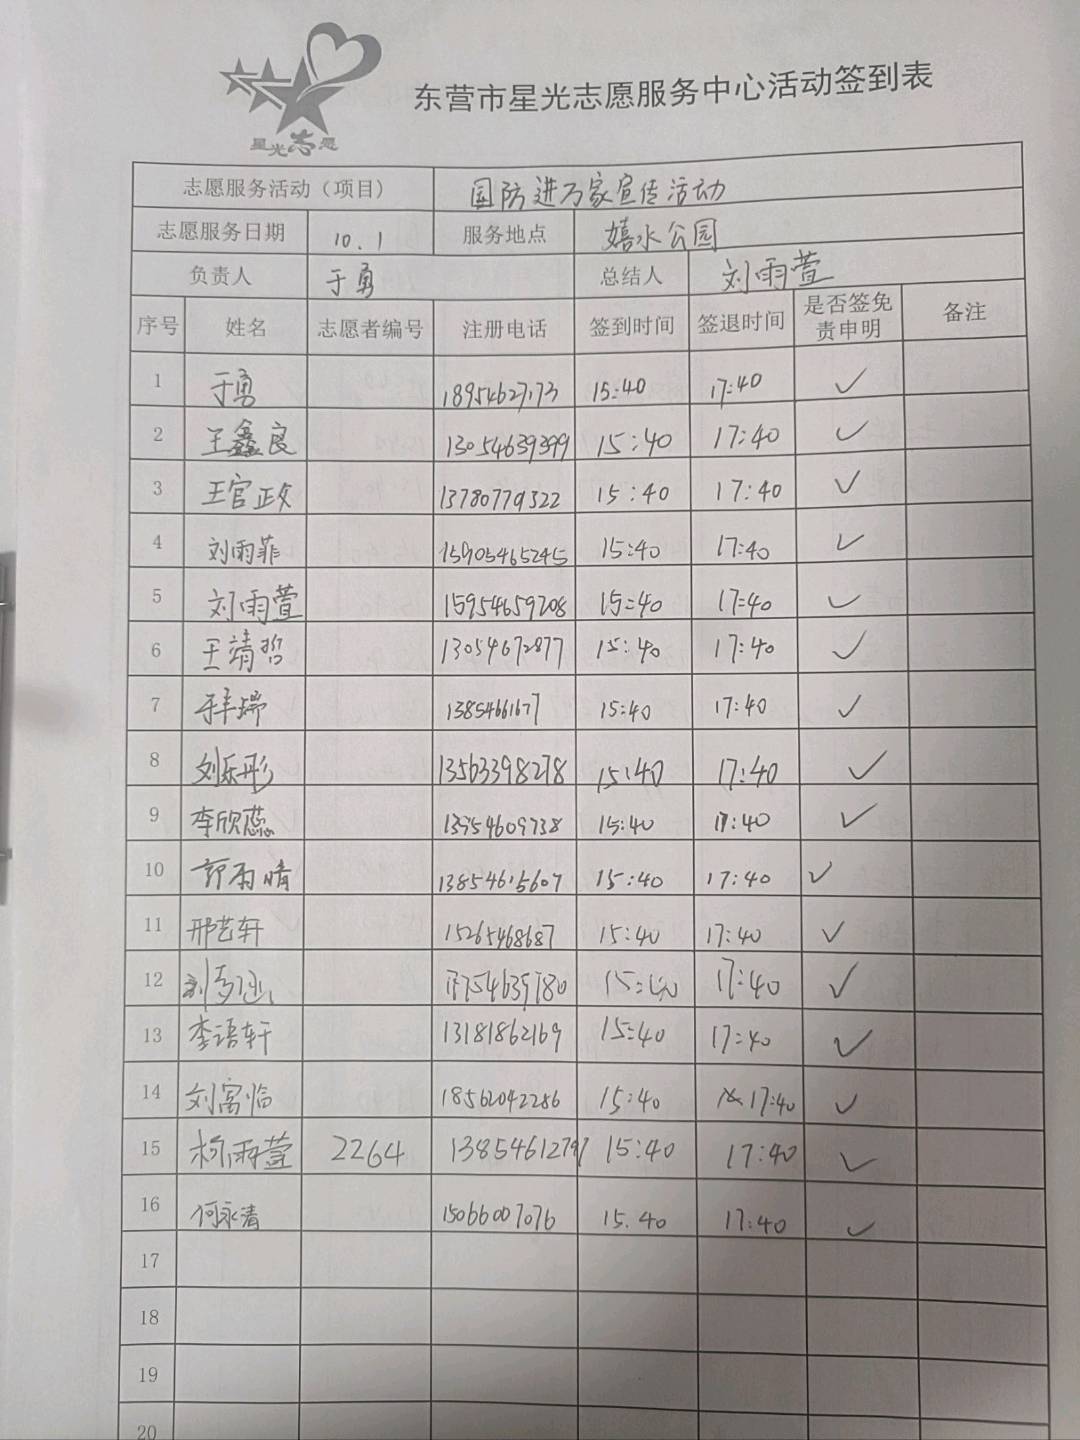 星光志愿
东营市星光志愿服务中心活动签到表
志愿服务活动（项目） 国防进万家宣传活动
志愿服务日期 10.1 服务地点 嬉水公园
负责人 于勇 总结人 刘雨萱
序号 姓名 志愿者编号 注册电话 签到时间 签退时间 是否签免责申明 备注
1 于勇 18954627173 15:40 17:40 ✓
2 王鑫良 13054639399 15:40 17:40 ✓
3 王官政 13780779322 15:40 17:40 ✓
4 刘雨菲 15905465245 15:40 17:40 ✓
5 刘雨萱 15954659208 15:40 17:40 ✓
6 王靖哲 13054672877 15:40 17:40 ✓
7 15:40 17:40 ✓
8 刘乐彤 13563398278 15:40 17:40 ✓
9 李欣蕊 13954609738 15:40 17:40 ✓
10 郭雨晴 13854615607 15:40 17:40 ✓
11 邢艺轩 15:40 17:40 ✓
12 15:40 17:40 ✓
13 李语轩 13181862169 15:40 17:40 ✓
14 18562042286 15:40 17:40 ✓
15 杨雨萱 2264 13854612797 15:40 17:40 ✓
16 何永清 15066007076 15.40 17:40 ✓
17
18
19
20